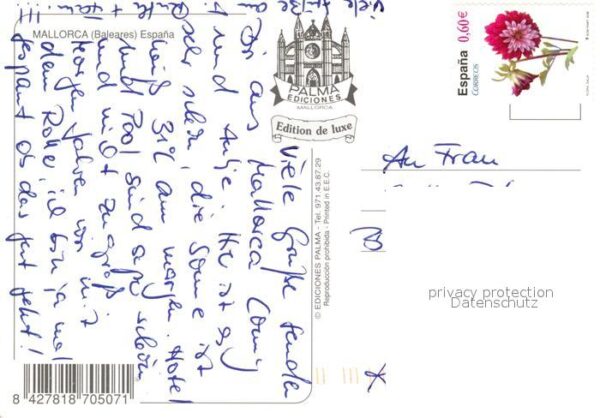 MALLORCA (Baleares) España
PALMA
EDICIONES
MALLORCA
Edition de luxe
España 0,60€
CORREOS
Viele Grüße sendet
Dir aus Mallorca Conny
und Antje. Hier ist es
sehr schön, die Sonne ist
heiß 31°C am morgen. Hotel
und Pool sind schön
und nicht zu groß.
Morgen fahren wir mit
dem ich bin ja mal
gespannt ob das gut geht!
!!!
Viele Grüße an
An Frau
B
© EDICIONES PALMA - Tel. 971 43.87.29
Reproducción prohibida - Printed in E.E.C.
privacy protection
Datenschutz
8 427818 705071